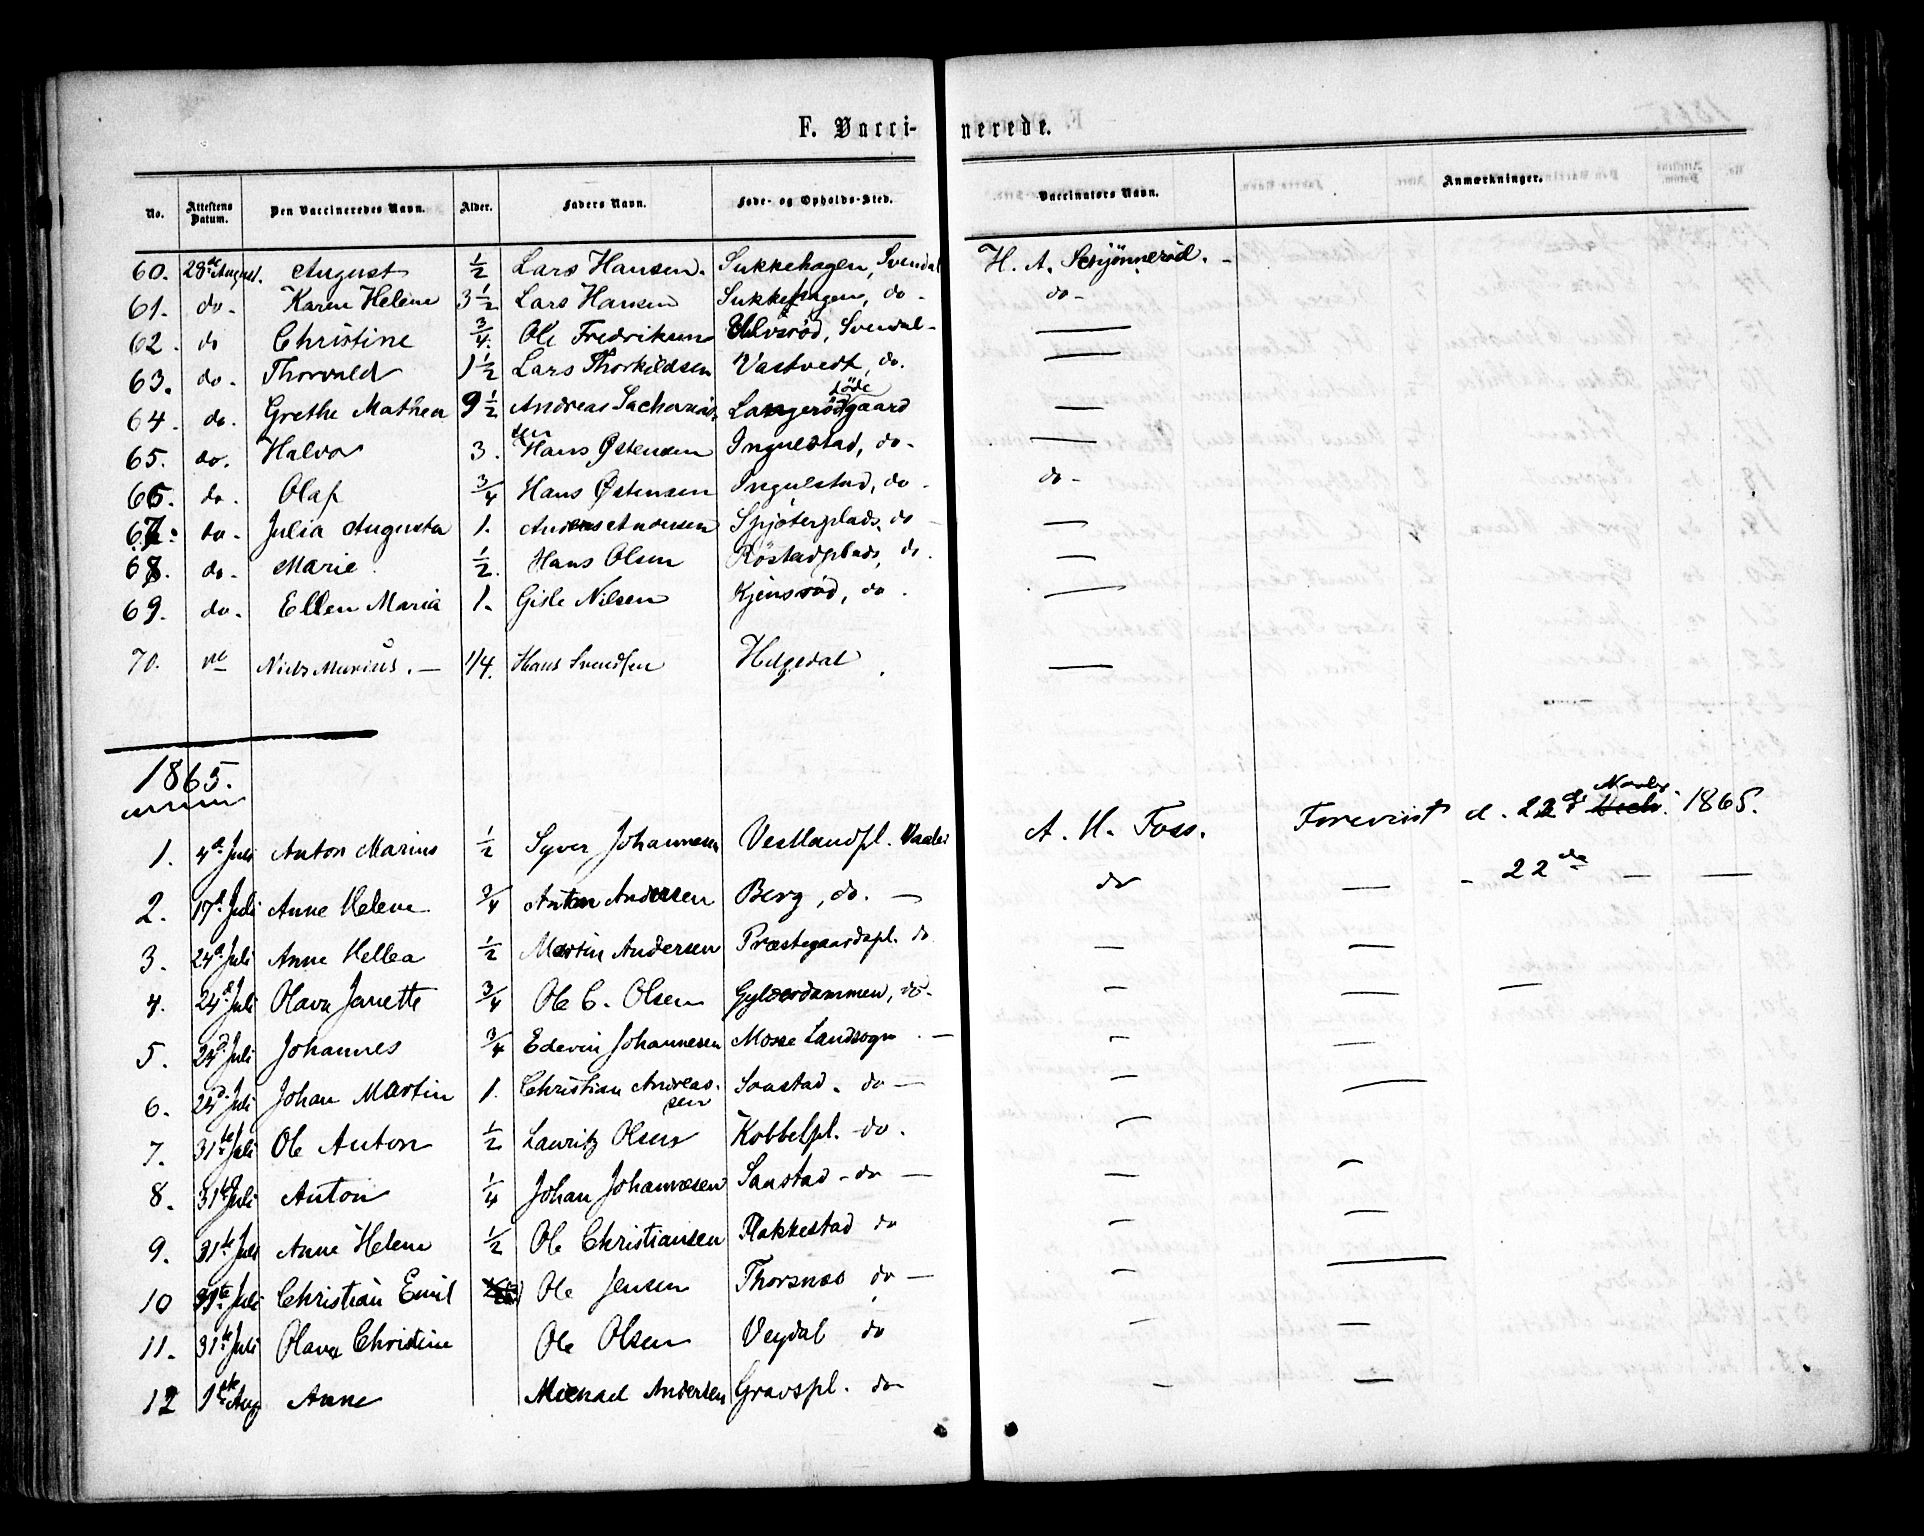 F. Vacci-nerede.
No. Attestens Datum. Den Vaccineredes Navn. Alder. Faders Navn. Føde- og Opholds-Sted. Vaccinators Navn. Anmærkninger.
60. 28de August. August ½ Lars Hansen. Sukkehagen, Svendal H. A. Schjønnerød. -
61. do- Karen Helene 3½ Lars Hansen Sukkehagen, do- do-
62. do Christine ¾. Ole Fredriksen Ulvsrød, Svendal- —
63. do. Thorvald 1½ Lars Thorkildsen Vastvedt, do. —
64. do. Grethe Mathea 9½ Andreas Zacharias-sen Langerødgaard —
65. do. Halvor 3. Hans Østensen Ingulstad, do- —
66. do. Olaf ¾ Hans Østensen Ingulstad, do- do-
67. do- Julia Augusta 1. Anders Andersen Spjøterplads, do —
68. do- Marie ½. Hans Olsen Röstadplads, do. —
69. do- Ellen Maria 1. Gisle Nilsen Kjensrød, do. —
70. do Niels Marius. — 1/4. Hans Svendsen Helgedal. —
1865.
1. 4de Juli Anton Marius ½ Syver Johannesen Vestlandpl. Vaaler A. H. Foss. Forevist d. 22de Novbr. 1865.
2. 17de Juli Anne Helene ¾ Anton Andersen Berg, do. — do — - 22de — —
3. 24de Juli Anne Hellea ½ Martin Andersen Præstegaardspl. do — —
4. 24de Juli Olava Janette ¾ Ole C. Olsen Gylderdammen, do. — — —
5. 24d Juli Johannes ¾ Edevin Johannesen Mosse Landsogn. — — —
6. 24d Juli Johan Martin 1. Christian Andreas-sen Saastad. do — — —
7. 31te Juli Ole Anton ½ Lauritz Olsen Kobbelpl. -do. — —
8. 31te Juli Anton ¼ Johan Johannesen Saastad - do — — —
9. 31te Juli Anne Helene ½ Ole Christiansen Rakkestad do — —
10 31te Juli Christian Emil Ole Jensen Thorsnæs do — — —
11. 31te Juli Olava Christine Ole Olsen Veydal do — —
12 1ste Aug Anne Michael Andersen Gravspl. do — —